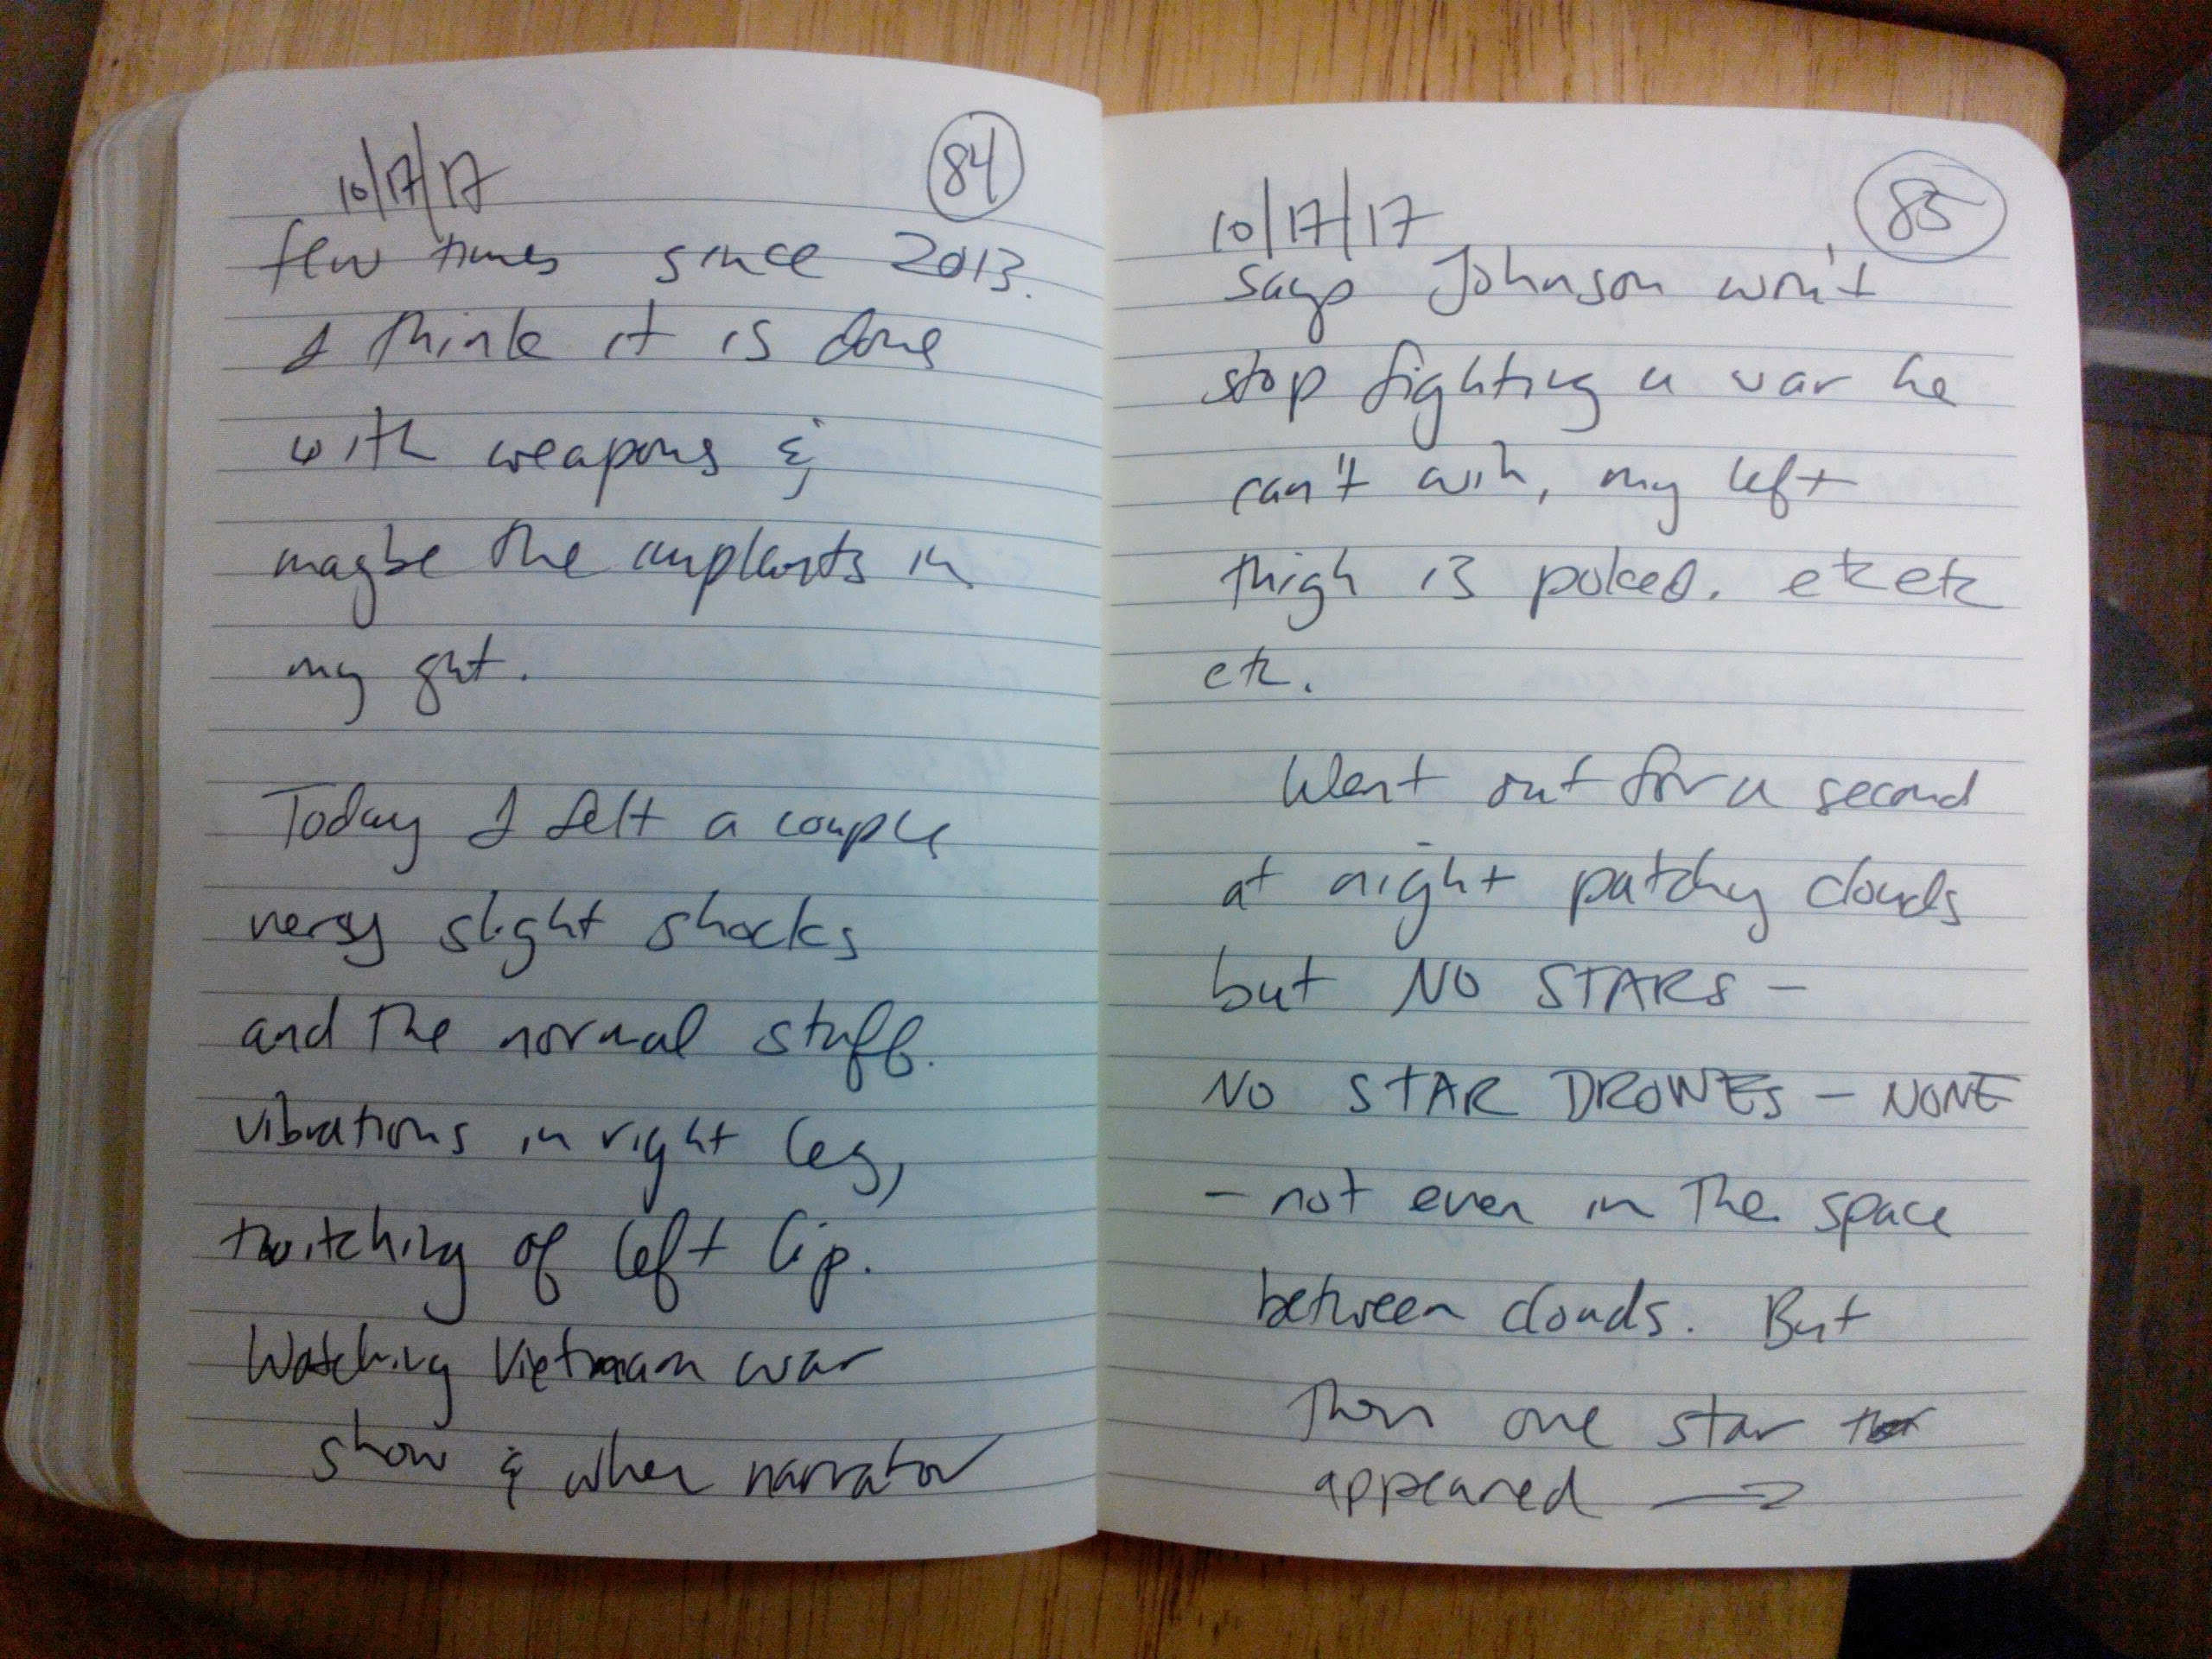 10/17/17 84
few times since 2013.
I think it is done
with weapons &
maybe the implants in
my gut.
Today I felt a couple
very slight shocks
and the normal stuff.
vibrations in right leg,
twitching of left lip.
Watching Vietnam war
show & when narrator
10/17/17 85
says Johnson won't
stop fighting a war he
can't win, my left
thigh is poked. etc etc
etc.
Went out for a second
at night patchy clouds
but NO STARS -
NO STAR DRONES - NONE
- not even in the space
between clouds. But
then one star
appeared →